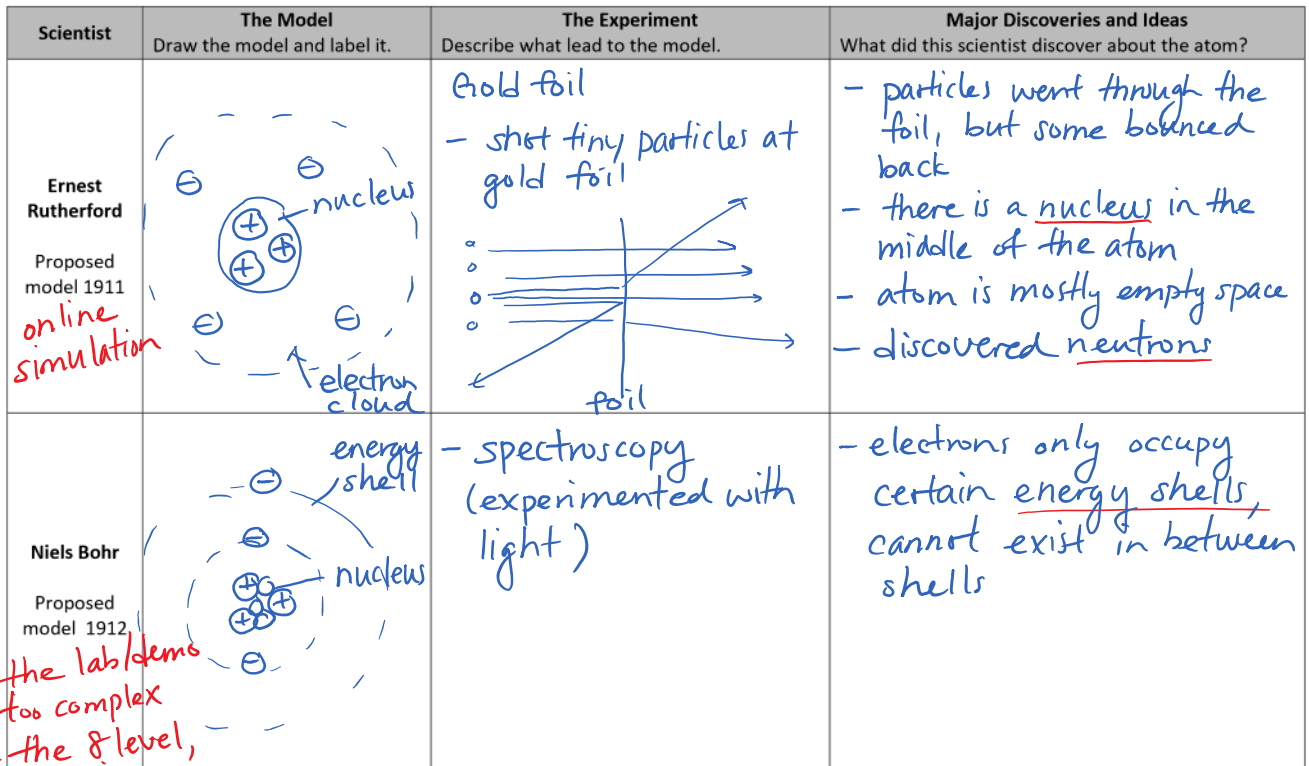 Scientist
The Model
Draw the model and label it.
The Experiment
Describe what lead to the model.
Major Discoveries and Ideas
What did this scientist discover about the atom?
Ernest
Rutherford
Proposed
model 1911
online
simulation
nucleus
electron
cloud
Gold foil
- shot tiny particles at
gold foil
foil
- particles went through the
foil, but some bounced
back
- there is a nucleus in the
middle of the atom
- atom is mostly empty space
- discovered neutrons
Niels Bohr
Proposed
model 1912
the lab/demo
too complex
the 8 level,
energy
shell
nucleus
- spectroscopy
(experimented with
light)
- electrons only occupy
certain energy shells,
cannot exist in between
shells